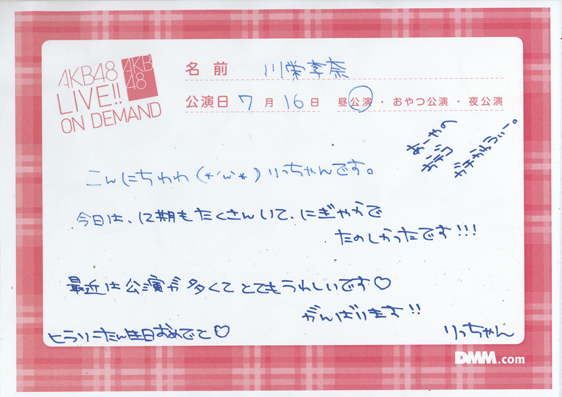 AKB48
LIVE!!
ON DEMAND
AKB
48
名前 川栄李奈
公演日 7月16日 昼公演・おやつ公演・夜公演
こんにちわわ(*´ω`*)りっちゃんです。
今日は、12期もたくさんいて、にぎやかで
たのしかったです!!!
最近は公演が多くてとてもうれしいです♡
がんばります!!
ヒラリーたん生日おめでと♡
りっちゃん
DMM.com